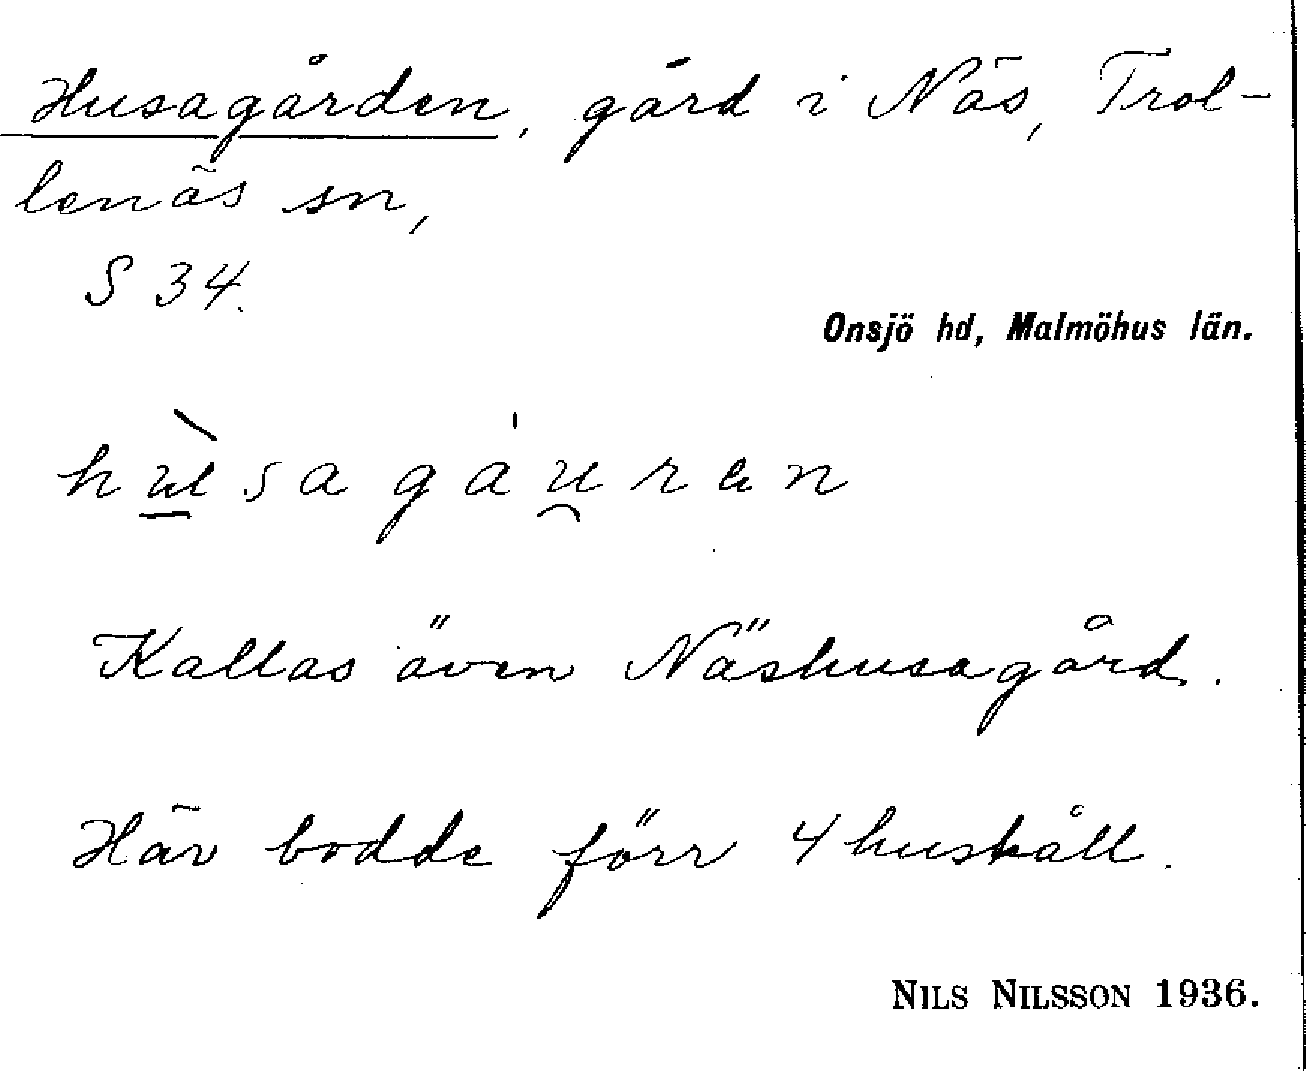 Husagården, gård i Näs, Trol-
lenäs sn,
S 34.
Onsjö hd, Malmöhus län.
hù̲sagáu̯ren
Kallas även Näshusagård.
Här bodde förr 4 hushåll.
NILS NILSSON 1936.